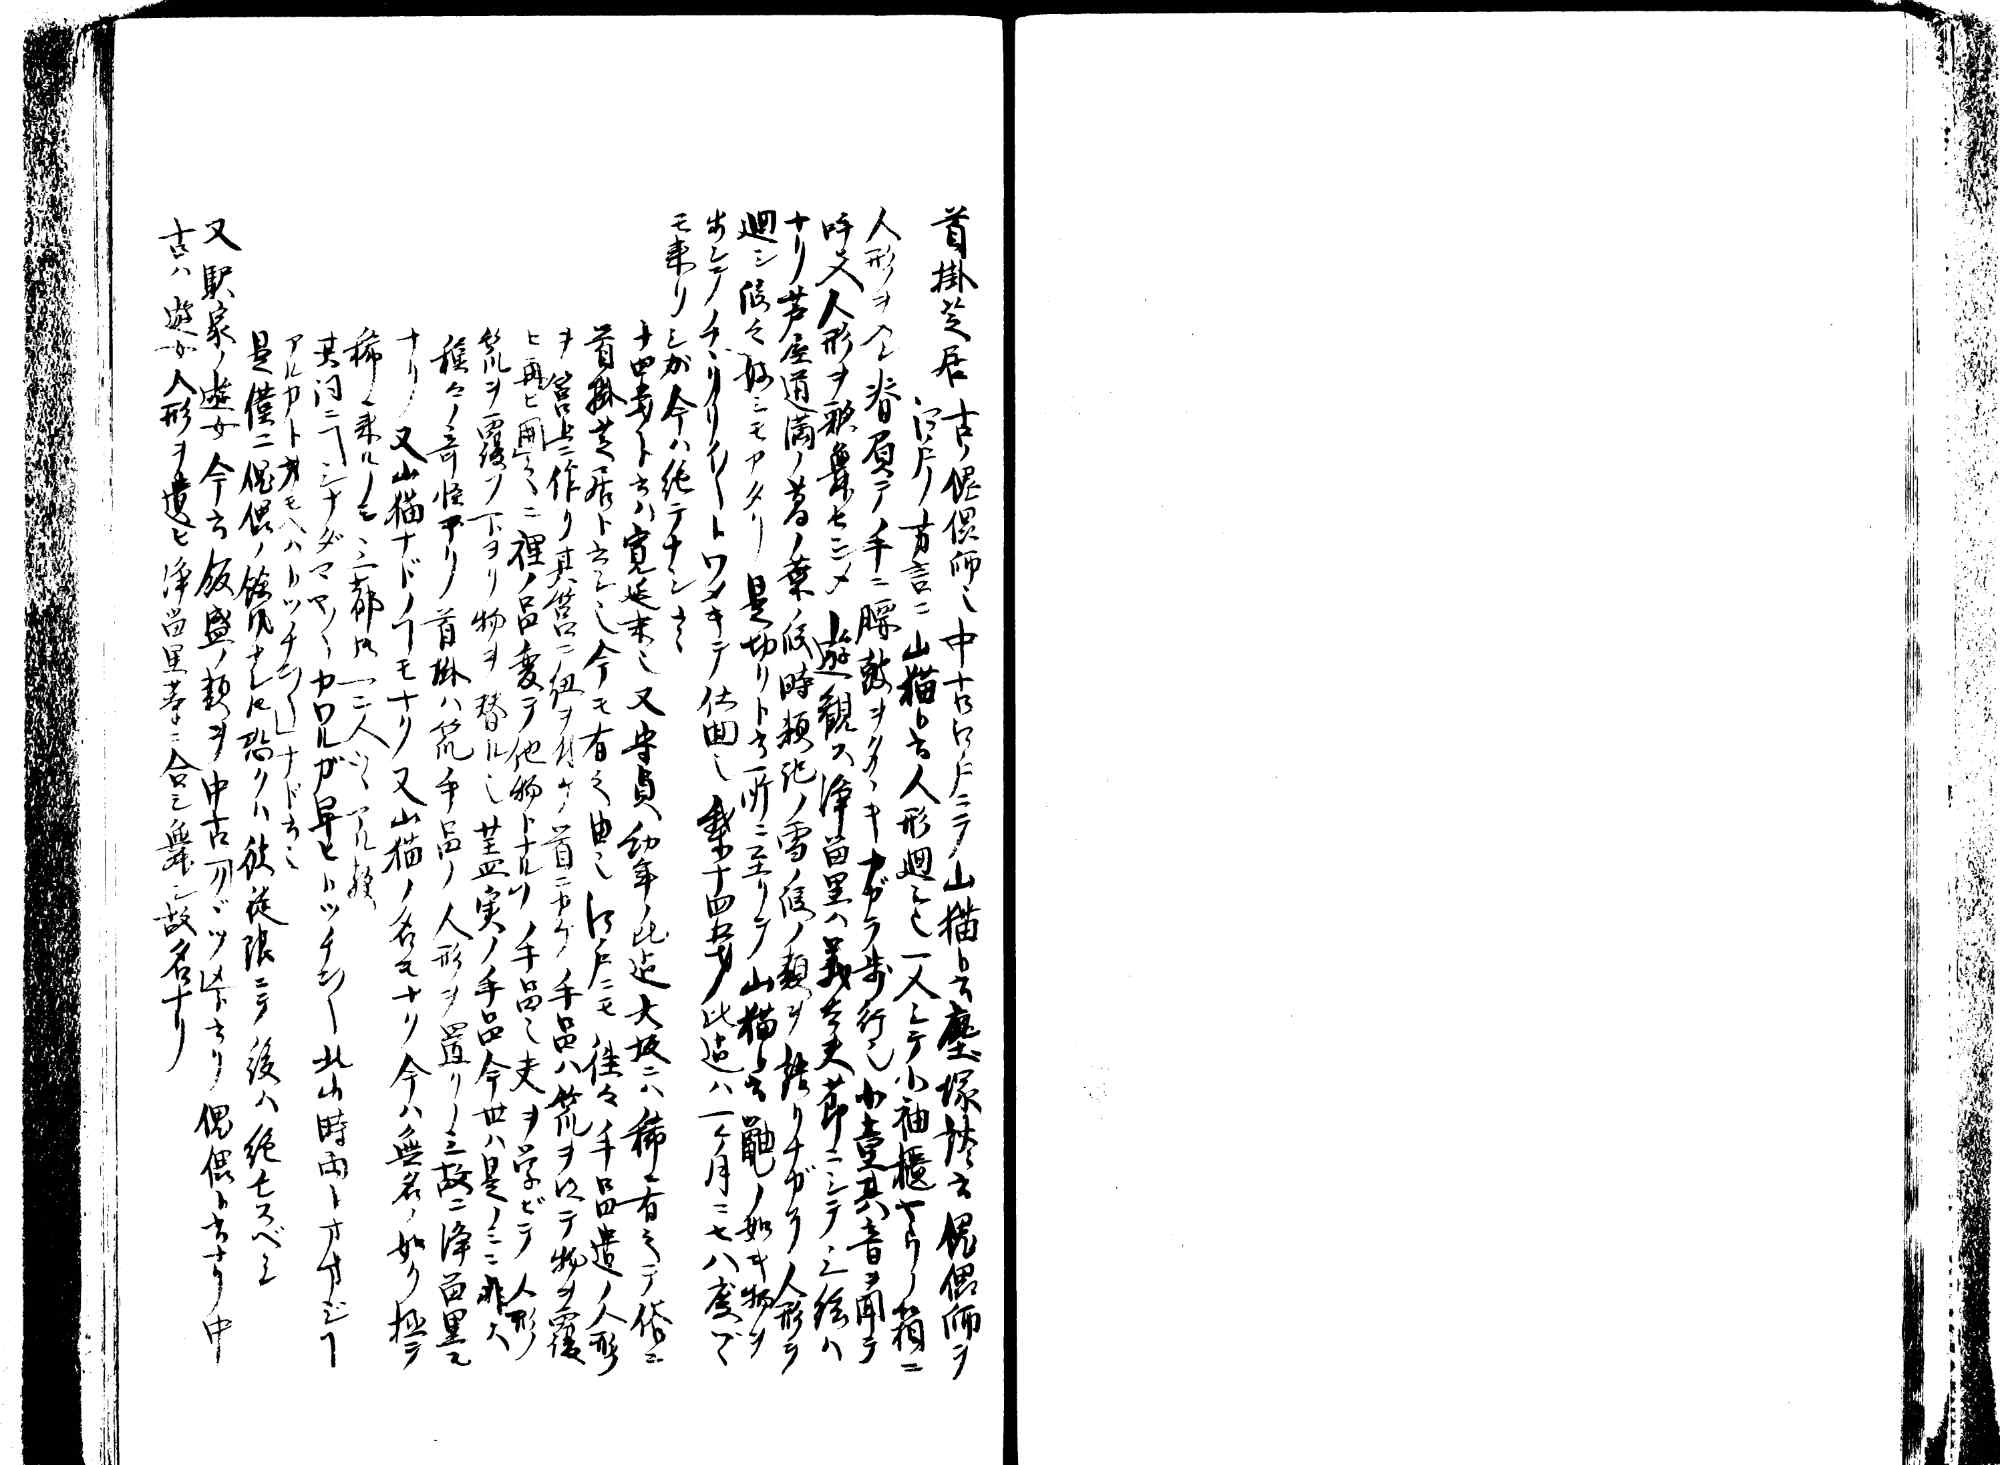 首掛芝居 古ノ傀儡師也 中古江戸ニテ山猫ト云 塵塚談云 傀儡師ヲ
江戸ノ方言ニ山猫ト云人形廻シ也一人ニテ小袖櫃ヤウノ箱ニ
人形ヲ入レ背負テ手ニ腰鼓ヲタヽキナガラ歩行也小童其音ヲ聞テ
呼入人形ヲ歌舞セシメ遊観ス浄留里ハ義太夫節ニシテ三絃ハ
ナリ芦屋道満ノ葛ノ葉ノ段時頼記ノ雪ノ段ノ類ヲ語リナガラ人形ヲ
廻シ段々好ミモアタリ是切リト云所ニ至リテ山猫ト云鼬ノ如キ物ヲ
出シテチヽリクリイートワメキテ仕回也我十四五歳ノ比迄ハ一ケ月ニ七八度ヅヽ
モ来リシガ今ハ絶テナシ云々
十四五歳ト云ハ寛延末也又守貞幼年ノ比迄大坂ニハ稀ニ有之テ俗ニ
首掛芝居ト云シ也今モ有之由也江戸ニモ往々手品遣ノ人形
ヲ筥上ニ作リ其筥ニ紐ヲ付ケ首ニカケ手品ハ笊ヲ以テ物ヲ覆
ヒ再ヒ開クニ裡ノ品変テ他物トナルノ手品也夫ヲ学ビテ人形ノ
笊ヲ覆フ下ヨリ物ヲ替ル也蓋実ノ手品今世ハ是ノミニ非ス
種々ノ奇怪アリ首掛ハ笊手品ノ人形ヲ置リノミ故ニ浄留里モ
ナリ又山猫ナドノコモナリ又山猫ノ名モナリ今ハ無名ノ如ク極テ
稀ニ来ルノミ三都各一二人ヅヽアル歟
其詞ニコシナダママノヽカワルガ早ヒトツチンー北山時雨トオカジコ
アルカト思モヘハトツチンーナド云也
是僅ニ傀儡ノ餘風ナレ圧恐クハ彼従限ニテ後ハ絶七スベシ
又駅家ノ遊女今云飯盛ノ類ヲ中古クヾツト云リ傀儡ト云ナリ中
古ハ遊女人形ヲ遣ヒ浄留里等ニ合シ舞シ故名ナリ